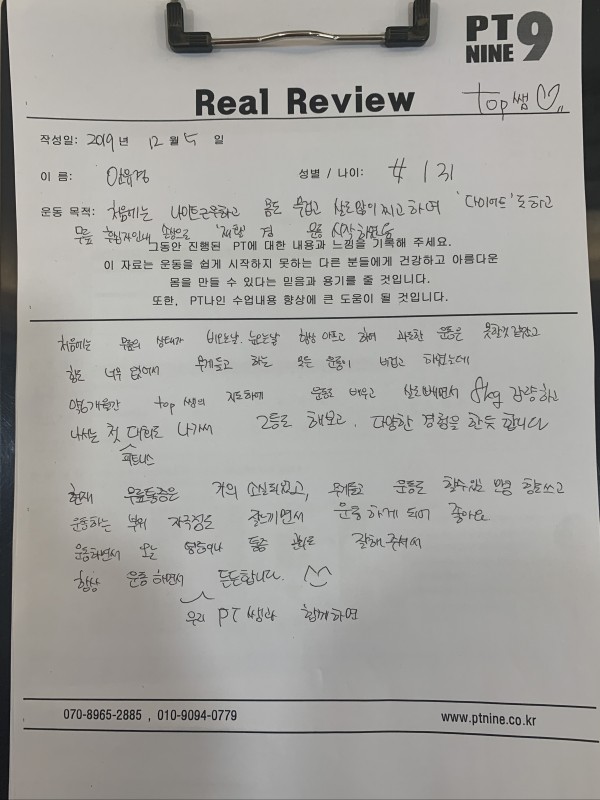 PT NINE 9
Real Review
top쌤
작성일: 2019 년 12 월 5 일
이 름:
성별 / 나이: 女 / 31
운동 목적: 처음에는 나이트근무하고 몸도 무겁고 살도많이찌고하여 '다이어트'도하고
무릎 손상으로 '재활' 겸 운동 시작하였음
그동안 진행된 PT에 대한 내용과 느낌을 기록해 주세요.
이 자료는 운동을 쉽게 시작하지 못하는 다른 분들에게 건강하고 아름다운
몸을 만들 수 있다는 믿음과 용기를 줄 것입니다.
또한, PT나인 수업내용 향상에 큰 도움이 될 것입니다.
처음에는 무릎의 상태가 비오는날, 눈오는날 항상 아프고 하여 과도한 운동은 못할것 같았고
힘도 너무 없어서 무게들고 하는 모든 운동이 버겁고 하였는데
약6개월간 top 쌤의 지도하에 운동도 배우고 살도빼면서 8kg 감량하고
나서는 첫 대회도 나가서 2등도 해보고, 다양한 경험을 한듯 합니다
피트니스
현재 무릎통증은 거의 소실되었고, 무게들고 운동도 할수있는 만큼 힘도쓰고
운동하는 부위 자극점도 잘느끼면서 운동하게 되어 좋아요
운동하면서 오는 통증 관리도 잘해주셔서
항상 운동하면서 든든합니다.
우리 PT쌤과 함께하면
070-8965-2885 , 010-9094-0779
www.ptnine.co.kr